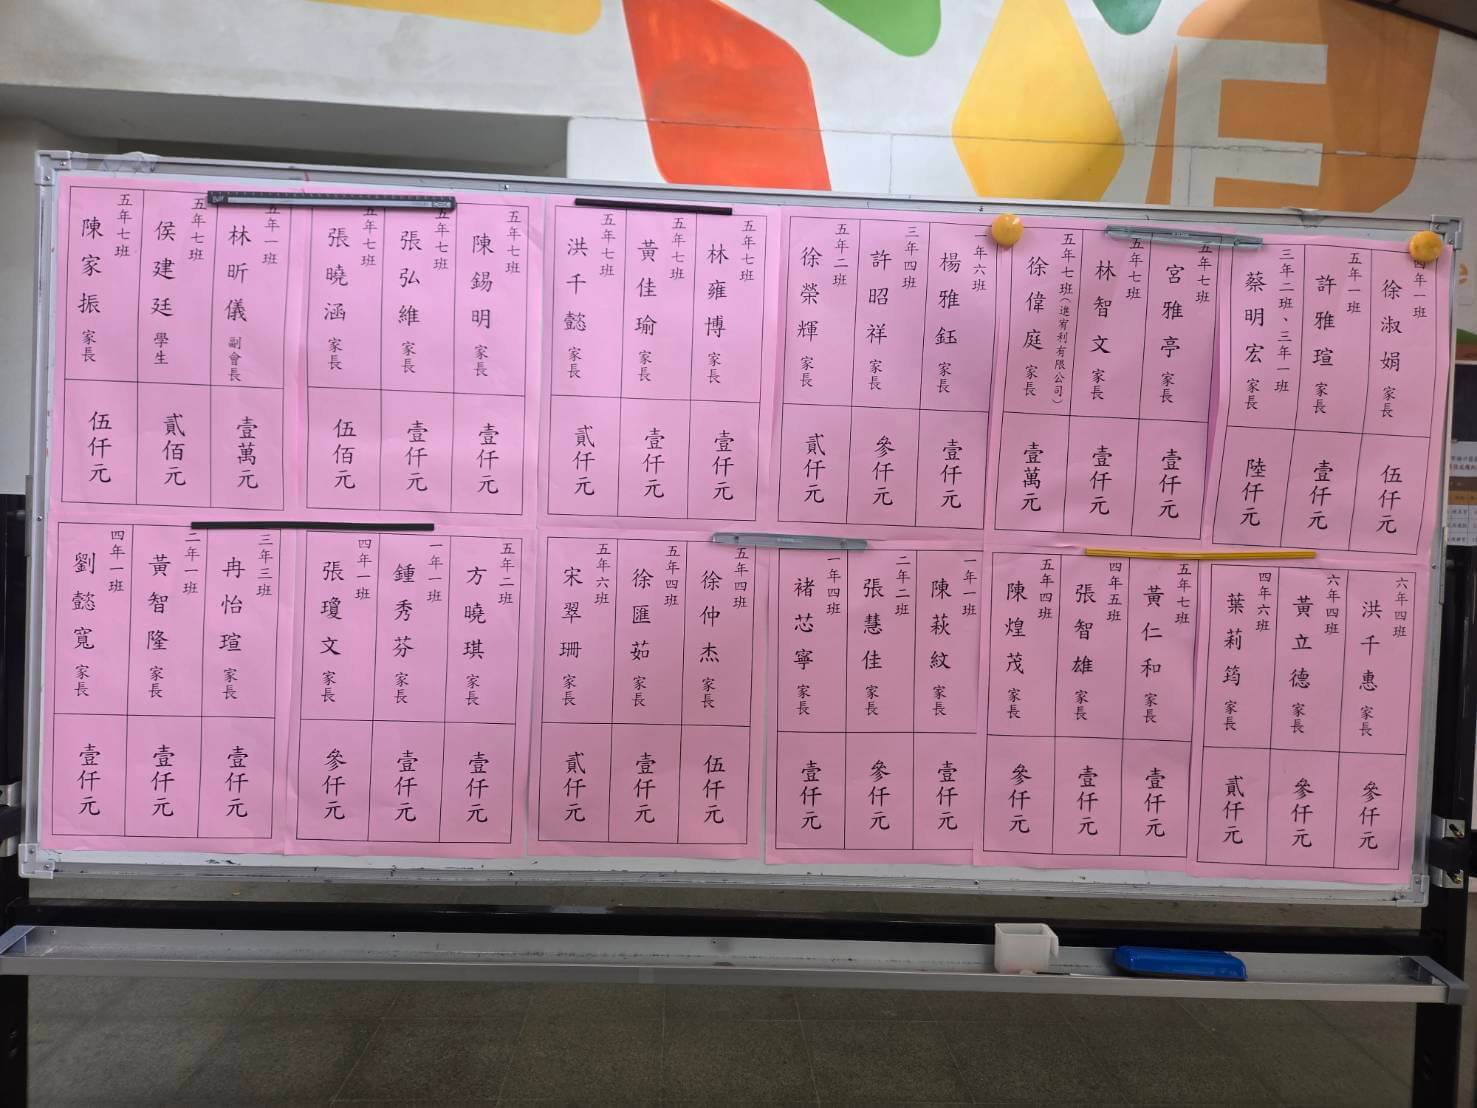 四年一班 徐淑娟 家長 伍仟元
五年一班 許雅瑄 家長 壹仟元
三年二班、三年一班 蔡明宏 家長 陸仟元
五年七班 宮雅亭 家長 壹仟元
五年七班 林智文 家長 壹仟元
五年七班(進宥利有限公司) 徐偉庭 家長 壹萬元
一年六班 楊雅鈺 家長 壹仟元
三年四班 許昭祥 家長 參仟元
五年二班 徐榮輝 家長 貳仟元
五年七班 林雍博 家長 壹仟元
五年七班 黃佳瑜 家長 壹仟元
五年七班 洪千懿 家長 貳仟元
五年七班 陳錫明 家長 壹仟元
五年七班 張弘維 家長 壹仟元
五年七班 張曉涵 家長 伍佰元
五年一班 林昕儀 副會長 壹萬元
五年七班 侯建廷 學生 貳佰元
五年七班 陳家振 家長 伍仟元
六年四班 洪千惠 家長 參仟元
六年四班 黃立德 家長 參仟元
四年六班 葉莉筠 家長 貳仟元
五年七班 黃仁和 家長 壹仟元
四年五班 張智雄 家長 壹仟元
五年四班 陳煌茂 家長 參仟元
一年一班 陳萩紋 家長 壹仟元
二年二班 張慧佳 家長 參仟元
一年四班 褚芯寧 家長 壹仟元
五年四班 徐仲杰 家長 伍仟元
五年四班 徐匯茹 家長 壹仟元
五年六班 宋翠珊 家長 貳仟元
五年二班 方曉琪 家長 壹仟元
一年一班 鍾秀芬 家長 壹仟元
四年一班 張瓊文 家長 參仟元
三年三班 冉怡瑄 家長 壹仟元
二年一班 黃智隆 家長 壹仟元
四年一班 劉懿寬 家長 壹仟元
E